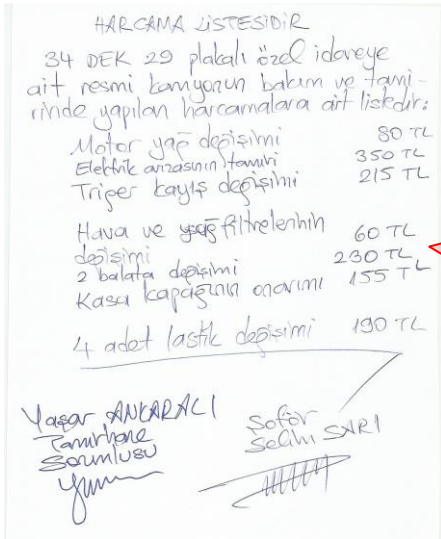 HARCAMA LİSTESİDİR
34 DEK 29 plakalı özel idareye
ait resmi kamyonun bakım ve tami-
rinde yapılan harcamalara ait listedir:
Motor yağ değişimi 80 TL
Elektrik arızasının tamiri 350 TL
Triger kayış değişimi 215 TL
Hava ve yağ filtrelerinin
değişimi 60 TL
2 balata değişimi 230 TL
Kasa kapağının onarımı 155 TL
4 adet lastik değişimi 190 TL
Yaşar ANKARACI
Tamirhane
Sorumlusu
Şoför
Selim SARI